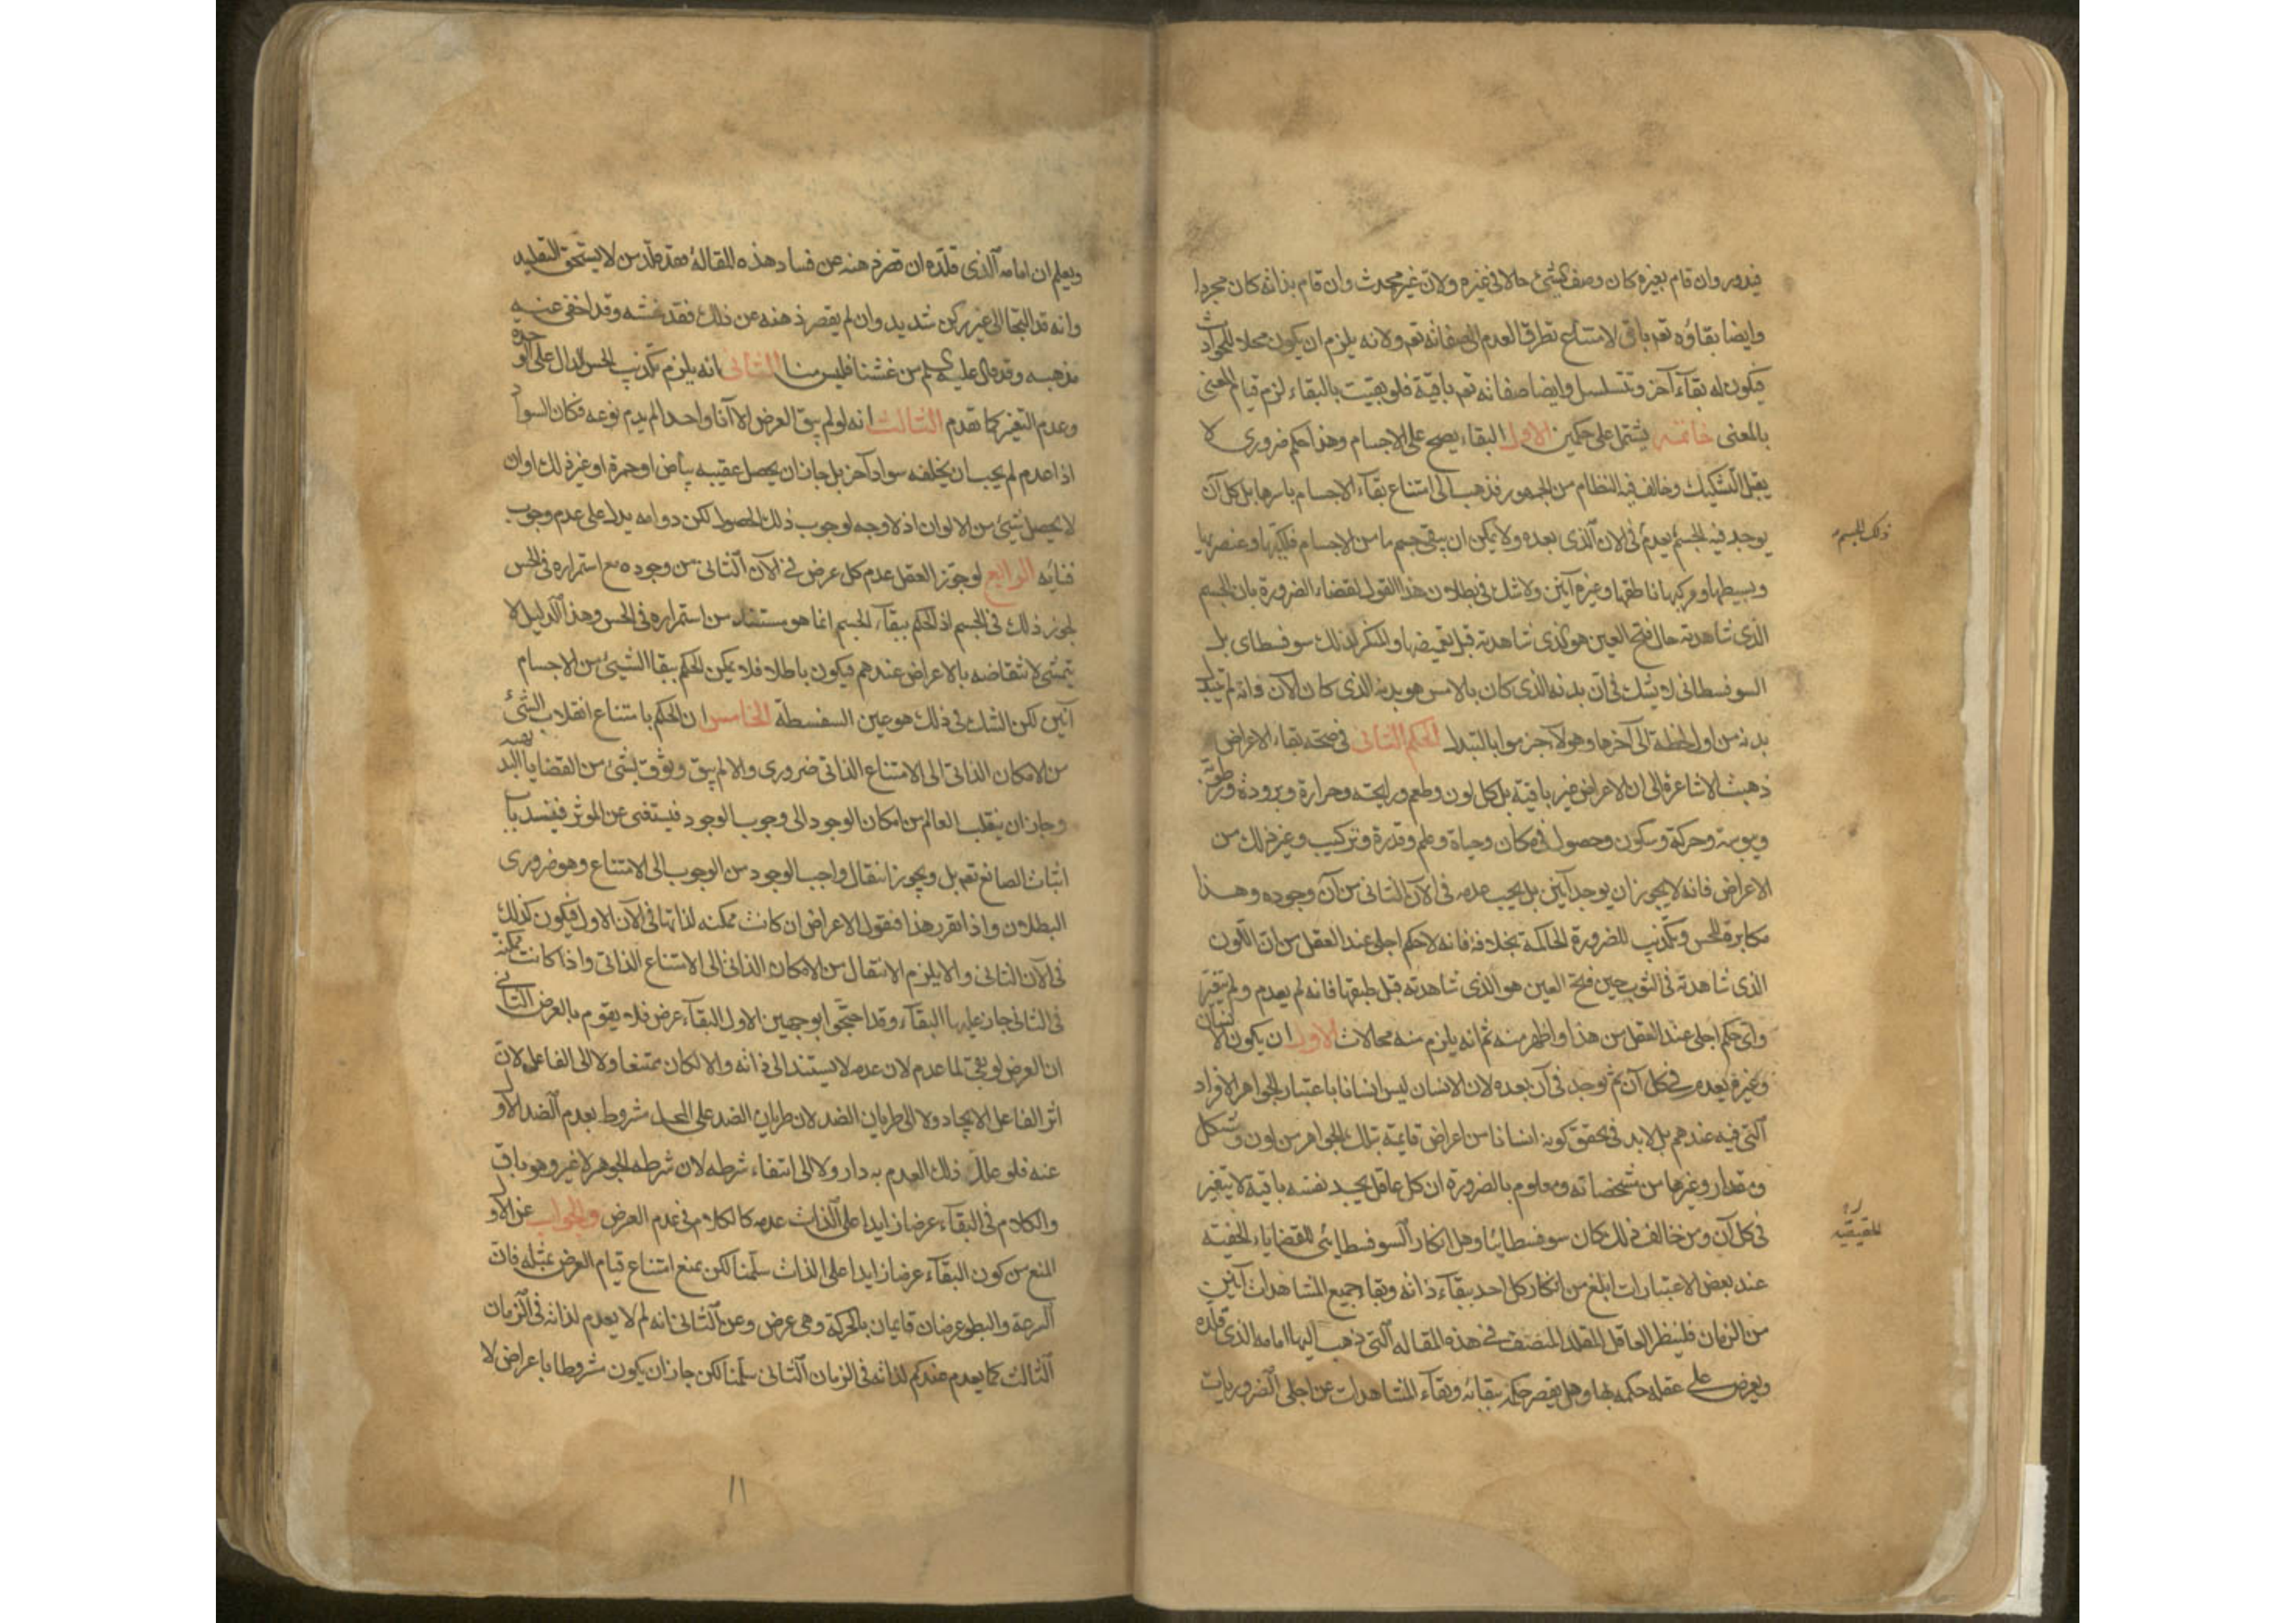 فيدور وان قام بغيره كان وصف الشئ حالا فى غيره ولان غير محدث وان قام بذاته كان مجردا
وايضا بقاؤه تعه باقى لامتناع تطرق العدم الى صفاته تعه ولانه يلزم ان يكون محلا للحوادث
فيكون له بقاء آخر وتسلسل وايضا صفاته تعه باقية فلو بقيت بالبقاء لزم قيام المعنى
بالمعنى خاتمة يشتمل على حكمين الاول البقاء يصح على الاجسام وهذا حكم ضرورى لا
يقبل التشكيك وخالف فيه النظام من الجمهور فذهب الى امتناع بقاء الاجسام باسرها بل كل آن
يوجد فيه الجسم يعدم فى الان الذى بعده ولا يمكن ان يبقى جسم ما من الاجسام فلكيها وعنصريها
ذلك الجسم
وبسيطها ومركبها ناطقها وغيره آنين ولا شك فى بطلان هذا القول لقضاء الضرورة بان الجسم
الذى شاهدته حال فتح العين هو الذى شاهدته قبل تغميضها والمنكر لذلك سوفسطاى بل
السوفسطائى لا يشك فى ان بدنه الذى كان بالامس هو بدنه الذى كان الآن وانه لم يتبدل
بدنه من اول لحظة الى آخرها وهولآء جزموا بالتبدل الحكم الثانى فى صحة بقاء الاعراض
ذهبت الاشاعرة الى ان الاعراض غير باقية بل كل لون وطعم ورايحته وحرارة وبرودة ورطوبة
ويبوسة وحركة وسكون وحصول فى مكان وحياة وعلم وقدرة وتركيب وغير ذلك من
الاعراض فانه لا يجوز ان يوجد آنين بل يجب عدمه فى الآن الثانى من آن وجوده وهذا
مكابرة للحس وتكذيب للضرورة الحاكمة بخلافه فانه لا حكم اجلى عند العقل من ان اللون
الذى شاهدته فى الثوب حين فتح العين هو الذى شاهدته قبل طبقها فانه لم يعدم ولم يتغير
واى حكم اجلى عند العقل من هذا واظهر منه ثم انه يلزم منه محالات الاول ان يكون الانسان
وغيره يعدم فى كل آن ثم يوجد فى آن بعده لان الانسان ليس انسانا باعتبار الجواهر الافراد
التى فيه عندهم بل لا بد فى تحقق كونه انسانا من اعراض قايمة بتلك الجواهر من لون وشكل
ومقدار وغيرها من مشخصاته ومعلوم بالضرورة ان كل عاقل يجد نفسه باقية لا يتغير
فى كل آن ومن خالف ذلك كان سوفسطائيا وهل انكار السوفسطائى للقضايا الخفية
الحقيقيه
عند بعض الاعتبارات ابلغ من انكار كل احد بقاء ذاته وبقاء جميع المشاهدات آنين
من الزمان فلينظر العاقل المقلد المنصف فى هذه المقاله التى ذهب اليها امامه الذى قلده
ويعرض على عقله حكمه بها وهل يقصر حكمه ببقائه وبقاء المشاهدات عن اجلى الضروريات
ويعلم ان امامه الذى قلده ان قصر ذهنه عن فساد هذه المقالة فقد قلد من لا يستحق التقليد
وانه قد التجأ الى غير ركن شديد وان لم يقصر ذهنه عن ذلك فقد غشه وقد اخفى عنه
مذهبه وقد قال عليه السلم من غشنا فليس منا الثانى انه يلزم تكذيب الحس الدال على الوحدة
وعدم التغير كما تقدم الثالث انه لو لم يبق العرض الا آنا واحدا لم يدم نوعه فكان السواد
اذا عدم لم يجب ان يخلفه سواد آخر بل جاز ان يحصل عقيبه بياض او حمرة او غير ذلك او ان
لا يحصل شئ من الالوان اذ لا وجه لوجوب ذلك الحصول لكن دوامه يدل على عدم وجوب
فنائه الرابع لو جوز العقل عدم كل عرض فى الآن الثانى من وجوده مع استمراره فى الحس
لجوز ذلك فى الجسم اذ الحكم ببقاء الجسم انما هو مستند من استمراره فى الحس وهذا الدليل لا
يتمشى لانتقاضه بالاعراض عندهم فيكون باطلا فلا يمكن الحكم ببقا الشئ من الاجسام
آنين لكن الشك فى ذلك هو عين السفسطة الخامس ان الحكم بامتناع انقلاب الشئ
من الامكان الذاتى الى الامتناع الذاتى ضرورى والا لم يبق وثوق بشئ من القضايا البديهيه
وجاز ان ينقلب العالم من امكان الوجود الى وجوب الوجود فيستغنى عن الموثر فينسد باب
اثبات الصانع تعه بل ويجوز انتقال واجب الوجود من الوجوب الى الامتناع وهو ضرورى
البطلان واذا تقرر هذا فنقول الاعراض ان كانت ممكنه لذاتها فى الآن الاول فيكون كذلك
فى الآن الثانى والا يلزم الانتقال من الامكان الذاتى الى الامتناع الذاتى واذا كانت ممكنة
فى الثانى جاز عليها البقاء وقد احتجوا بوجهين الاول البقاء عرض فلا يقوم بالعرض الثانى
ان العرض لو بقى لما عدم لان عدمه لا يستند الى ذاته والا لكان ممتنعا ولا الى الفاعل لان
اثر الفاعل الايجاد ولا الى طريان الضد لان طريان الضد على المحل مشروط بعدم الضد الاول
عنه فلو علل ذلك العدم به دار ولا الى انتفاء شرطه لان شرطه الجوهر لا غير وهو باق
والكلام فى البقاء عرضا زايدا على الذات عدمه كالكلام فى عدم العرض والجواب عن الاول
المنع من كون البقاء عرضا زايدا على الذات سلمنا لكن نمنع امتناع قيام العرض بمثله فان
السرعة والبطو عرضان قايمان بالحركة وهى عرض وعن الثانى انه لم لا يعدم لذاته فى الزمان
الثالث كما يعدم عندكم لذاته فى الزمان الثانى سلمنا لكن جاز ان يكون مشروطا باعراض لا
١١